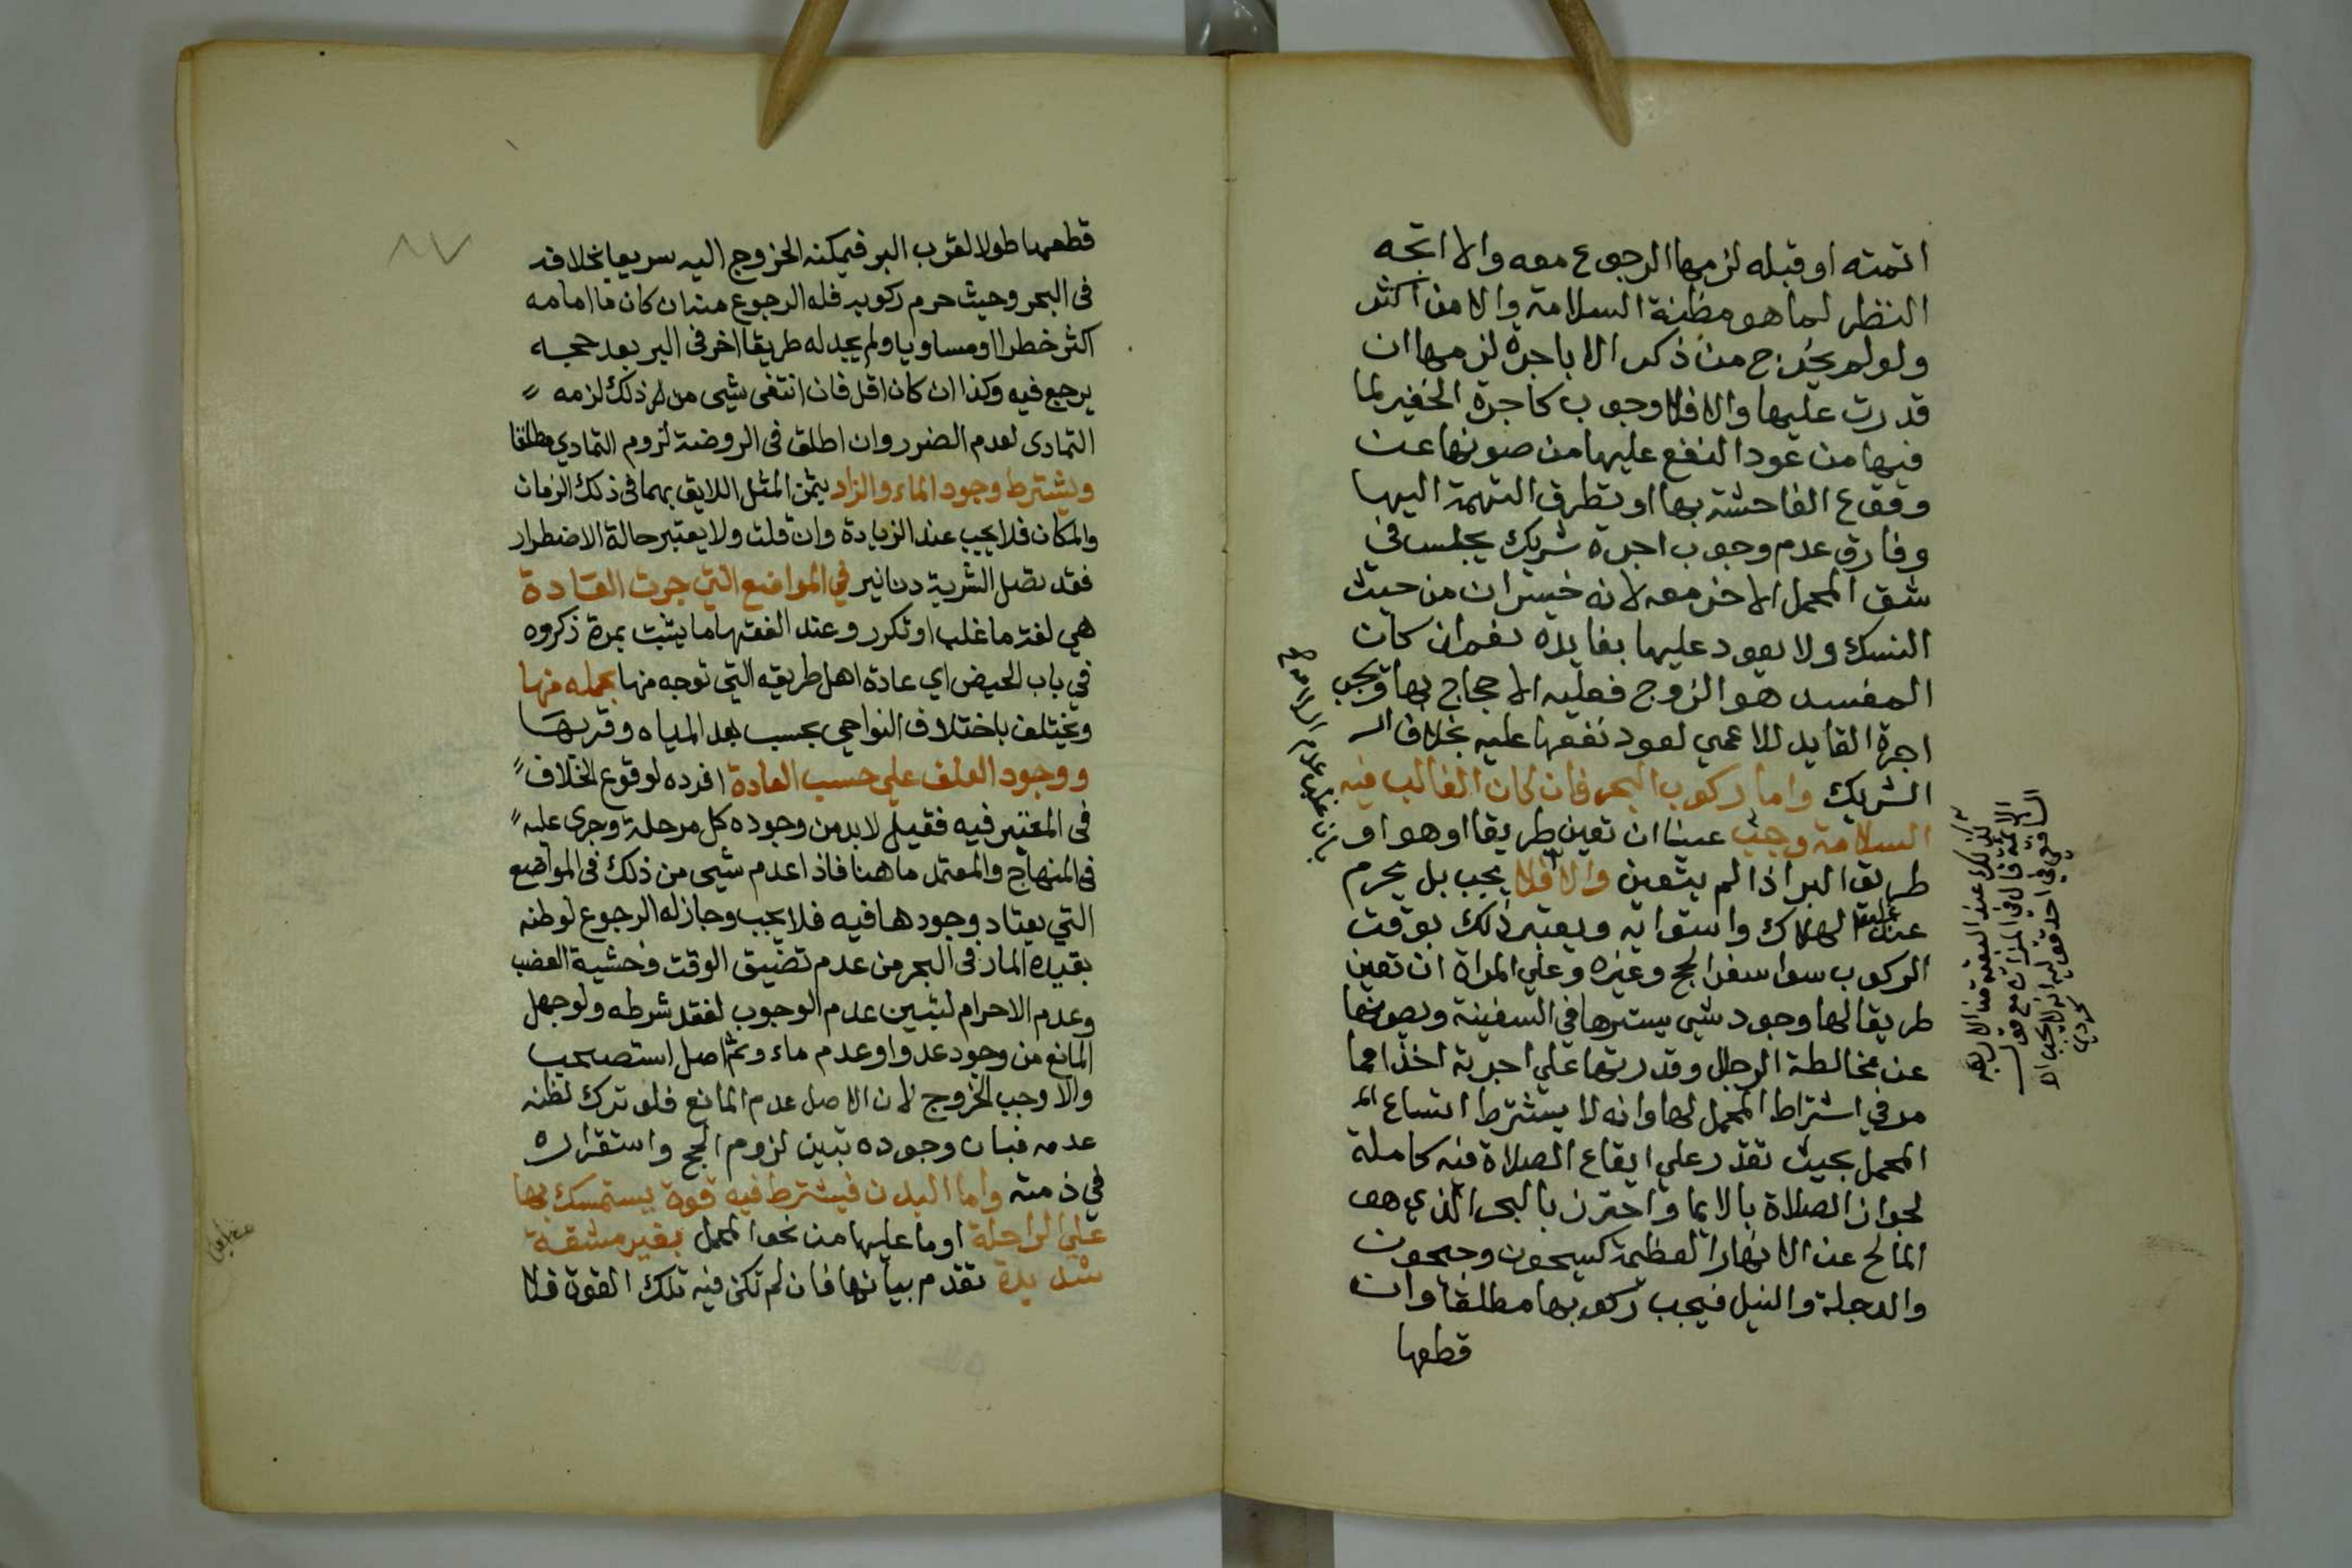 اتمته او قبله لزمها الرجوع معه والا اتجه
النظر لما هو مظنة السلامة والامن اكثر
ولو لم يخرج من ذكر الا باجرة لزمها ان
قدرت عليها والا فلا وجوب كاجرة الخفير لما
فيها من عود النفع عليها من صونها عن
وقوع الفاحشة بها او تطرق التهمة اليها
وفارق عدم وجوب اجرة شريك يجلس في
شق المحمل الاخر معه لانه خسران من حيث
النسك ولا يعود عليها بفايده نعم ان كان
المفسد هو الزوج فعليه الاحجاج بها وتجب
اجرة القايد للاعمي لعود نفعها عليه بخلاف الـ
الشريك واما ركوب البحر فان كان الغالب فيه
السلامة وجب عينا ان تعين طريقا او هو او
طريق البر اذا لم يتعين والا فلا يجب بل يحرم
عند غلبة الهلاك واستوايه ويعتبر ذلك بوقت
الركوب سوا سفر الحج وغيره وعلي المراة ان تعين
طريقا لها وجود شي يسترها في السفينة ويصونها
عن مخالطة الرجال وقدرتها علي اجرته اخذا مما
مر في اشتراط المحمل لها وانه لا يشترط اتساع الم
المحمل بحيث تقدر علي ايقاع الصلاة فيه كاملة
لجواز الصلاة بالايما واحترز بالبحر الذي هو
المالح عن الانهار العظيمة كسيحون وجيحون
والدجلة والنيل فيجب ركوبها مطلقا وان
قطعها
كذلك عند الفقهاء الاربعة
الائمة قال في الميزان مع قول
الشافعي في احد قوليه انه لا يجب الا
كردي
٨٧
قطعها طولا لقرب البر فيمكنه الخروج اليه سريعا بخلافه
في البحر وحيث حرم ركوبه فله الرجوع منه ان كان ما امامه
اكثر خطرا او مساويا ولم يجد له طريقا اخر في البر بعد حجه
يرجع فيه وكذا ان كان اقل فان انتفي شيى من ذلك لزمه
التمادى لعدم الضرر وان اطلق في الروضة لزوم التمادي مطلقا
ويشترط وجود الماء والزاد بثمن المثل اللايق بهما في ذلك الزمان
والمكان فلا يجب عند الزيادة وان قلت ولا يعتبر حالة الاضطرار
فقد تصل الشربة دنانير في المواضع التي جرت العادة
هي لغة ما غلب او تكرر وعند الفقها ما يثبت بمرة ذكروه
في باب الحيض اي عادة اهل طريقه التي توجه منها بحمله منها
ويختلف باختلاف النواحي بحسب بعد المياه وقربها
ووجود العلف علي حسب العادة افرده لوقوع الخلاف
في المعتبر فيه فقيل لا بد من وجوده كل مرحلة وجرى عليه
في المنهاج والمعتمد ما هنا فاذا عدم شيى من ذلك في المواضع
التي يعتاد وجودها فيه فلا يجب وجاز له الرجوع لوطنه
بقيده المار في البحر من عدم تضيق الوقت وخشية العضب
وعدم الاحرام لتبين عدم الوجوب لفقد شرطه ولو جهل
المانع من وجود عدو او عدم ماء وثم اصل استصحب
والا وجب الخروج لان الاصل عدم المانع فلو ترك لظنه
عدمه فبان وجوده تبين لزوم الحج واستقراره
في ذمته واما البدن فيشترط فيه قوة يستمسك بها
علي الراحلة او ما عليها من نحو المحمل بغير مشقة
شديدة تقدم بيانها فان لم تكن فيه تلك القوة فلا